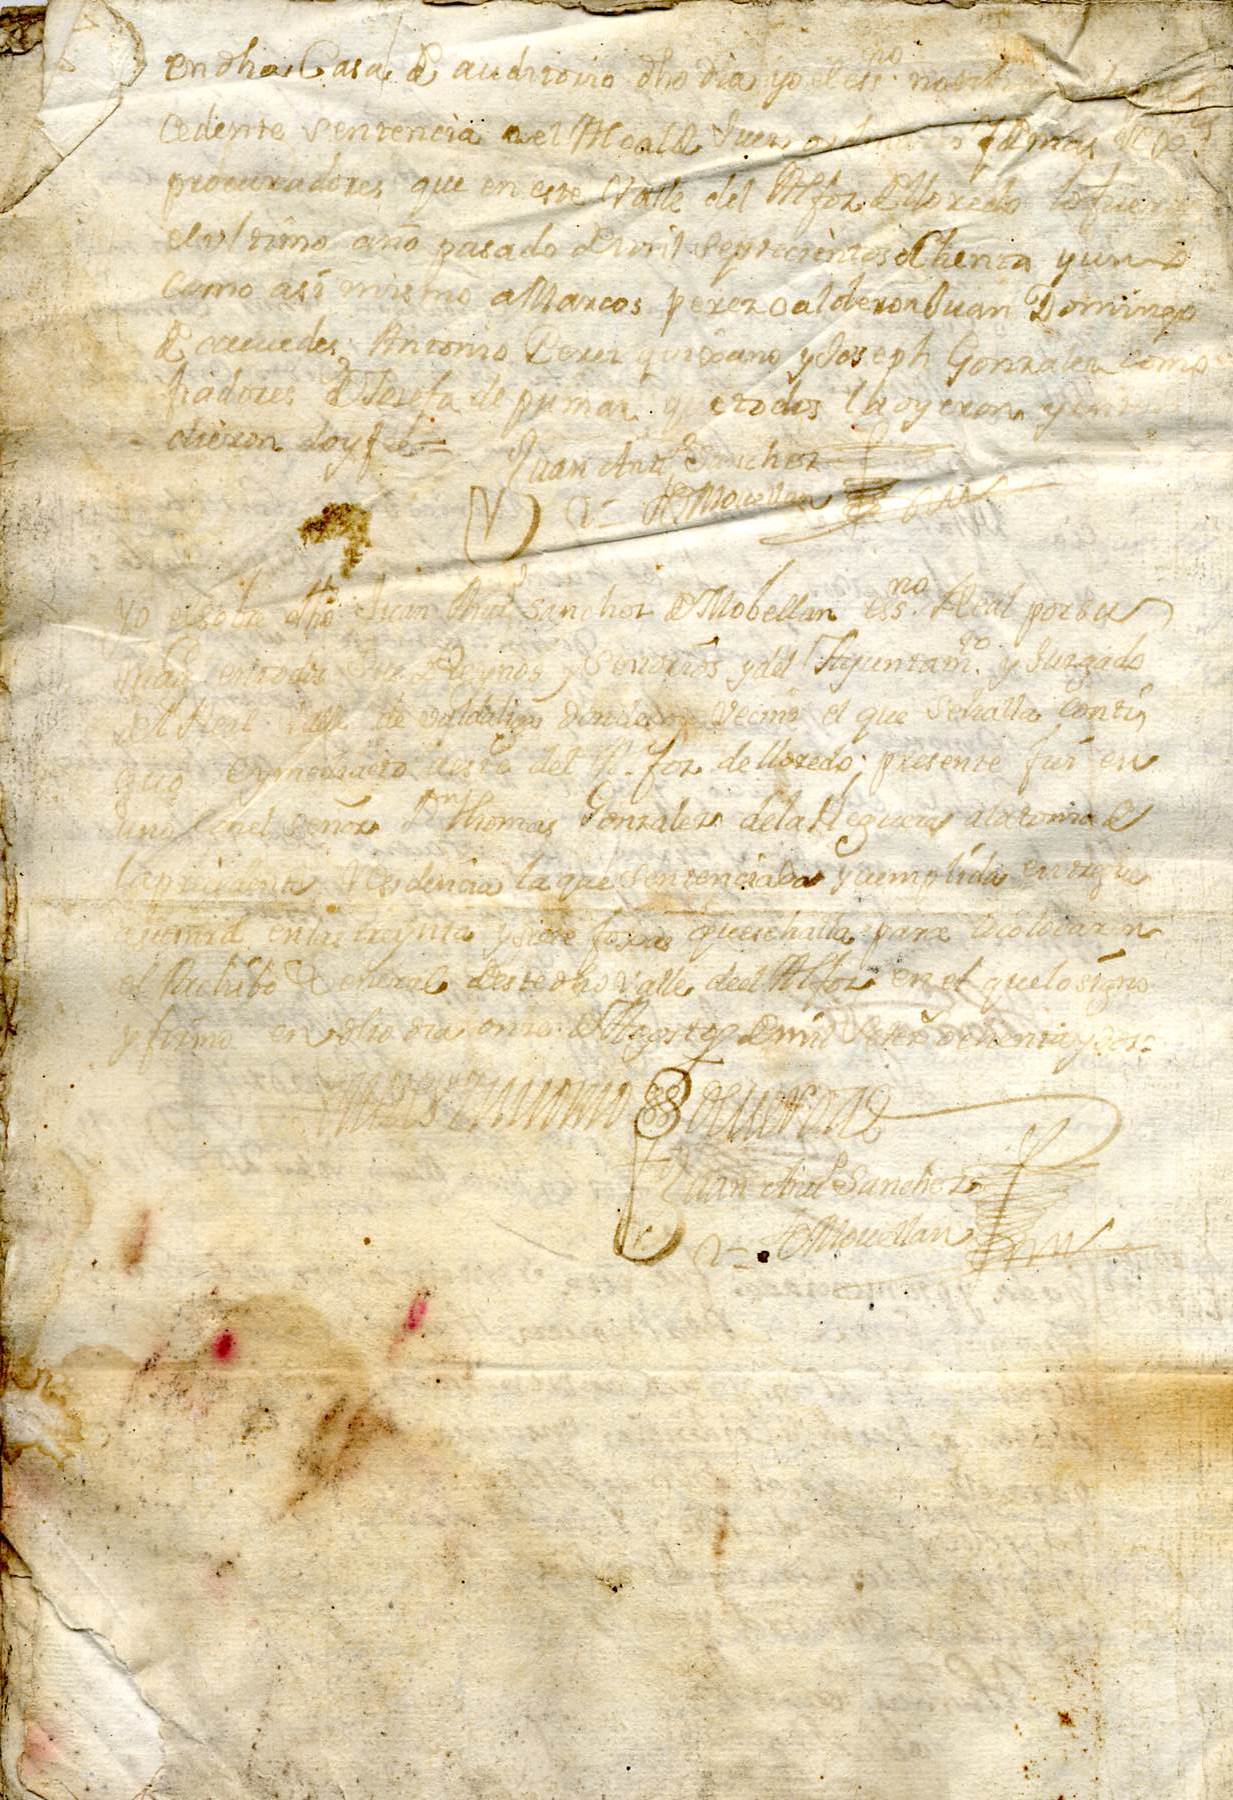 en dha Casa de auditorio dho dia, yo el essno
cedente sentencia a el Alcalde Juez ordinario y demas
procuradores que en este Valle del Alfoz de lloredo lo fueron
el vltimo año pasado de mil septecientos ochenta y uno
como asi mismo a Marcos perez calderon Juan Domingo
de caviedes, Antonio Perez quixano y Joseph Gonzalez como
fiadores de Josefa de pumar, que todos la oyeron y enten
dieron doy fe =
Juan Antto Sanchez
de Movellan
Yo el sobre dho Juan Antto Sanchez de Mobellan essno Real por su
en todos sus Reynos y señorios y del Ayuntamto y Juzgado
del Real Valle de valdaliga donde soy vecino el que se halla conti
guo e ynmediato a este del Alfoz de lloredo; presente fui en
uno con el señor Dn Thomas Gonzalez de la Reguera a la toma de
la presente residencia la que sentenciada y cumplida
en las treynta y siete foxas que se halla para colocar en
el Archibo General de este dho Valle de el Alfoz en el que lo signo
y firmo en dho dia once de Agosto de mil setezs ochenta y dos =
Juan Antto Sanchez
de Movellan